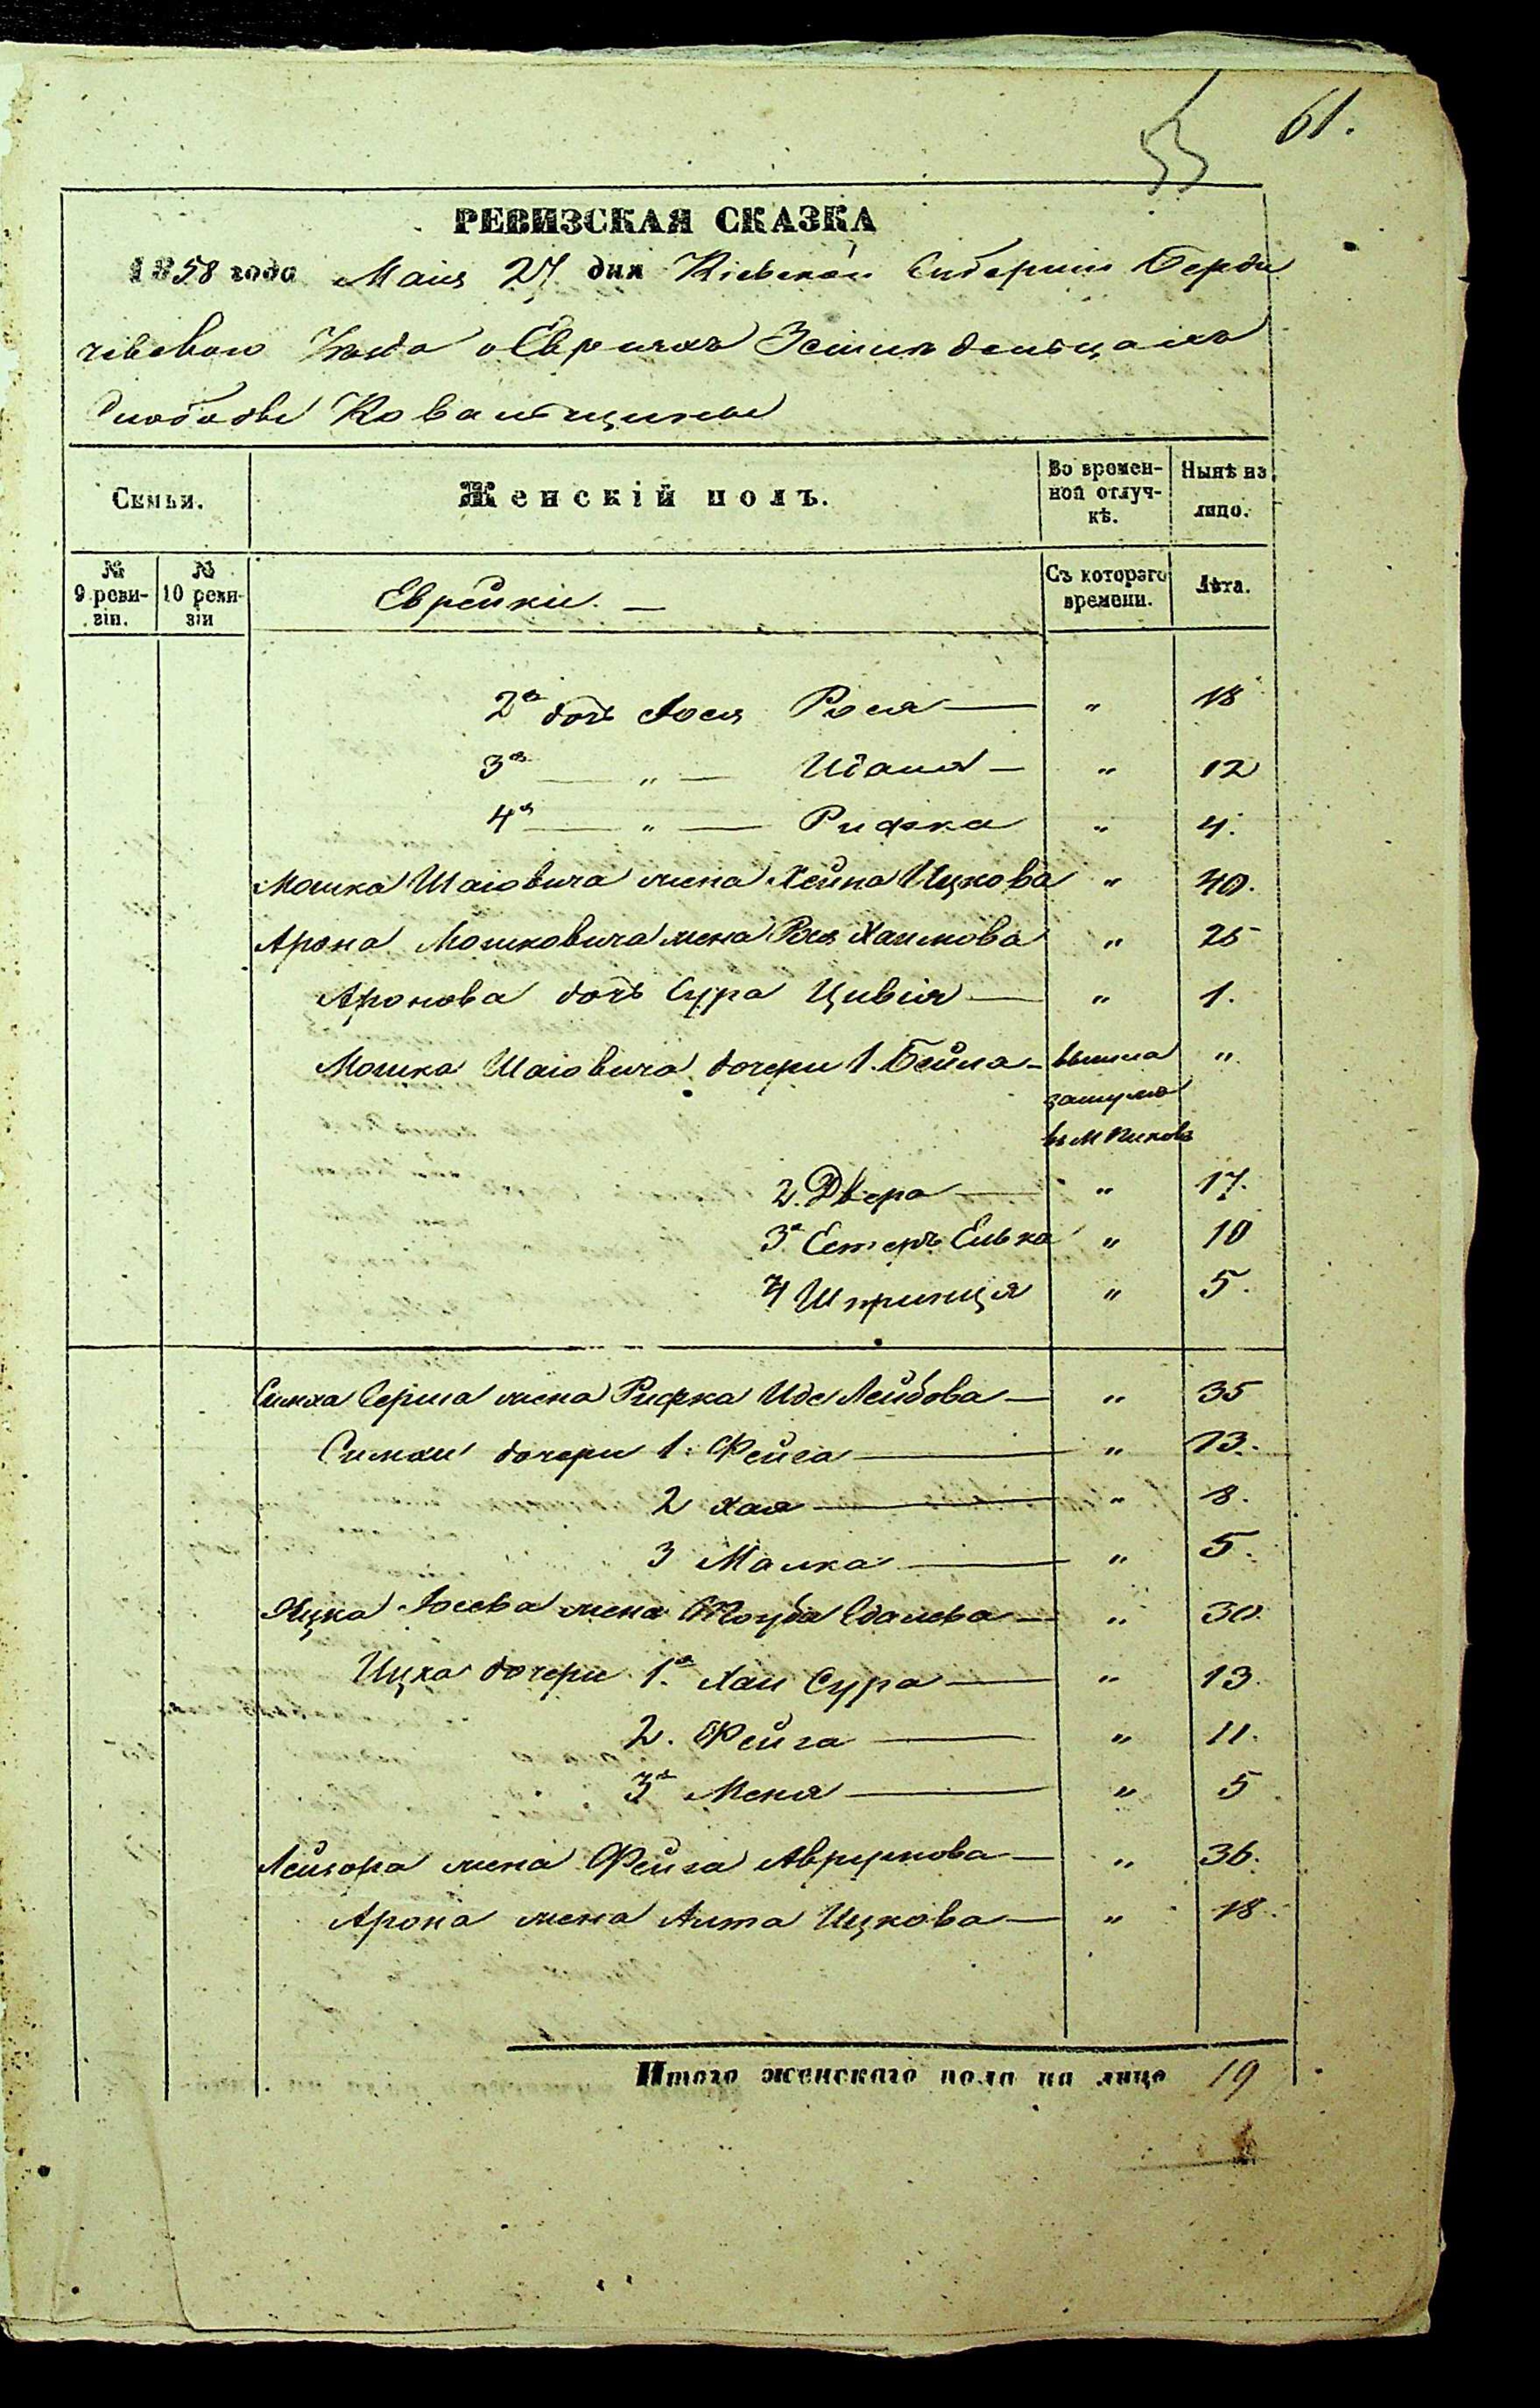 61.
53
РЕВИЗСКАЯ СКАЗКА
1858 года Маія 27 дня Кіевской Губерніи Берди
чевскаго Уезда о Евреяхъ Земледельцахъ
Слободы Ковальщизны
Семьи.
Женскій полъ.
Во времен-
ной отлуч-
кѣ.
Нынѣ на
лицо.
№
9 реви-
зіи.
№
10 реви-
зіи
Еврейки. —
Съ котораго
времени.
Лѣта.
2я дочь Іося Рося — " 18
3я — " — Идася — " 12
4я — " — Рифка " 4.
Мошка Шаіовича жена Хейна Ицкова " 40.
Арона Мошковича жена Рося Хаимова " 25
Аронова дочь Сура Цивія — " 1.
Мошка Шаіовича дочери 1. Бейла - вышла "
замужъ
въ М Пиковъ
2. Двера — " 17.
3я Естеръ Елька " 10
4 Шпринця " 5.
Симха Серша жена Рифка Иде Лейбова — " 35
Симхи дочери 1. Фейга — " 13.
2 Хая — " 8.
3 Малка — " 5.
Ицка Іосева жена Тоуба — " 30.
Ицка дочери 1.я Хаи Сура — " 13.
2. Фейга — " 11.
3я Меня — " 5
Лейзора жена Фейга Аврумова — " 36.
Арона жена Алта Ицкова — " 18.
Итого женскаго пола на лицо 19